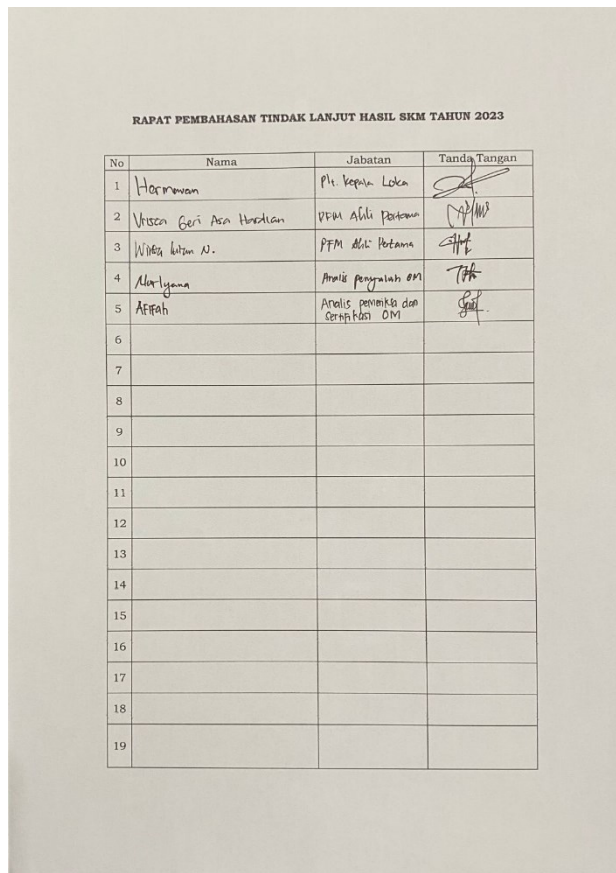 RAPAT PEMBAHASAN TINDAK LANJUT HASIL SKM TAHUN 2023
No Nama Jabatan Tanda Tangan
1 Hermawan Plt. Kepala Loka
2 Vrisca Geri Asa Hardian PFM Ahli Pertama
3 N. PFM Ahli Pertama
4 Marlyana Analis penyuluh OM
5 AFIFah Analis pemeriksa dan
sertifikasi OM
6
7
8
9
10
11
12
13
14
15
16
17
18
19